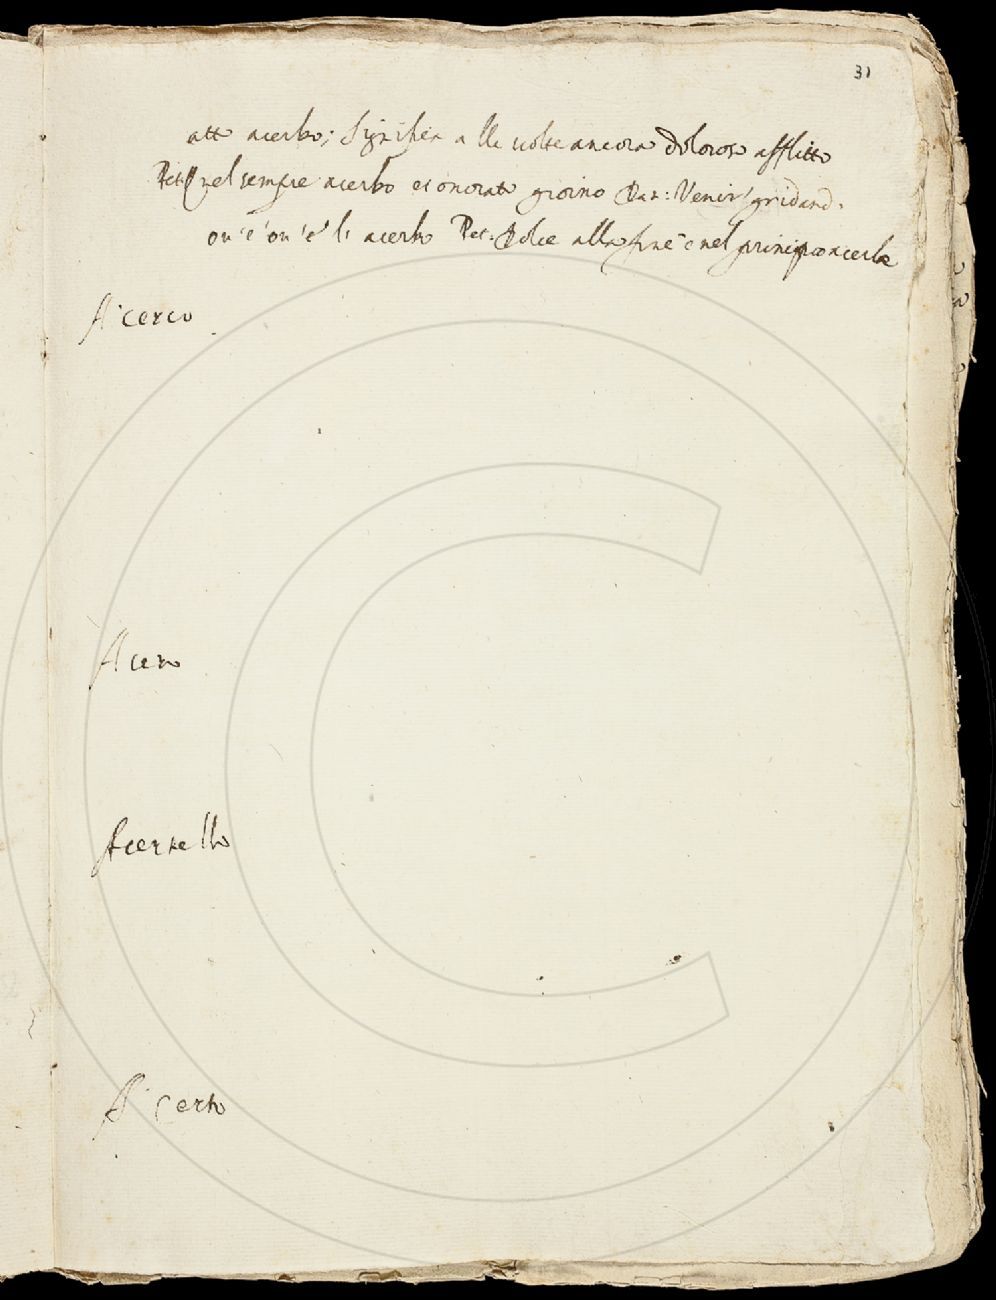 31
atto acerbo; significa alle volte ancora doloroso afflitto
Pet: nel sempre acerbo et onorato giorno Dan: Venir gridand.
ou'è ou'è l' acerbo Pet: Dolce alla fine e nel principio acerba
A' cerco
Acero
Acertello
A' certo